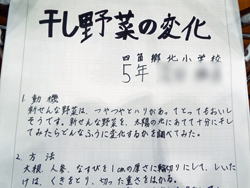 干し野菜の変化
四箇郷北小学校
5年
1. 動機
新せんな野菜は、つやつやとハリがあってとってもおいし
そうです。新せんな野菜を、太陽の光にあてて十分に干し
てみたらどんなふうに変化するかを調べてみた。
2. 方法
大根、人参、なすびを1cmの厚さに輪切りにして、しいた
けは、くきをとり、切った重さをはかる。